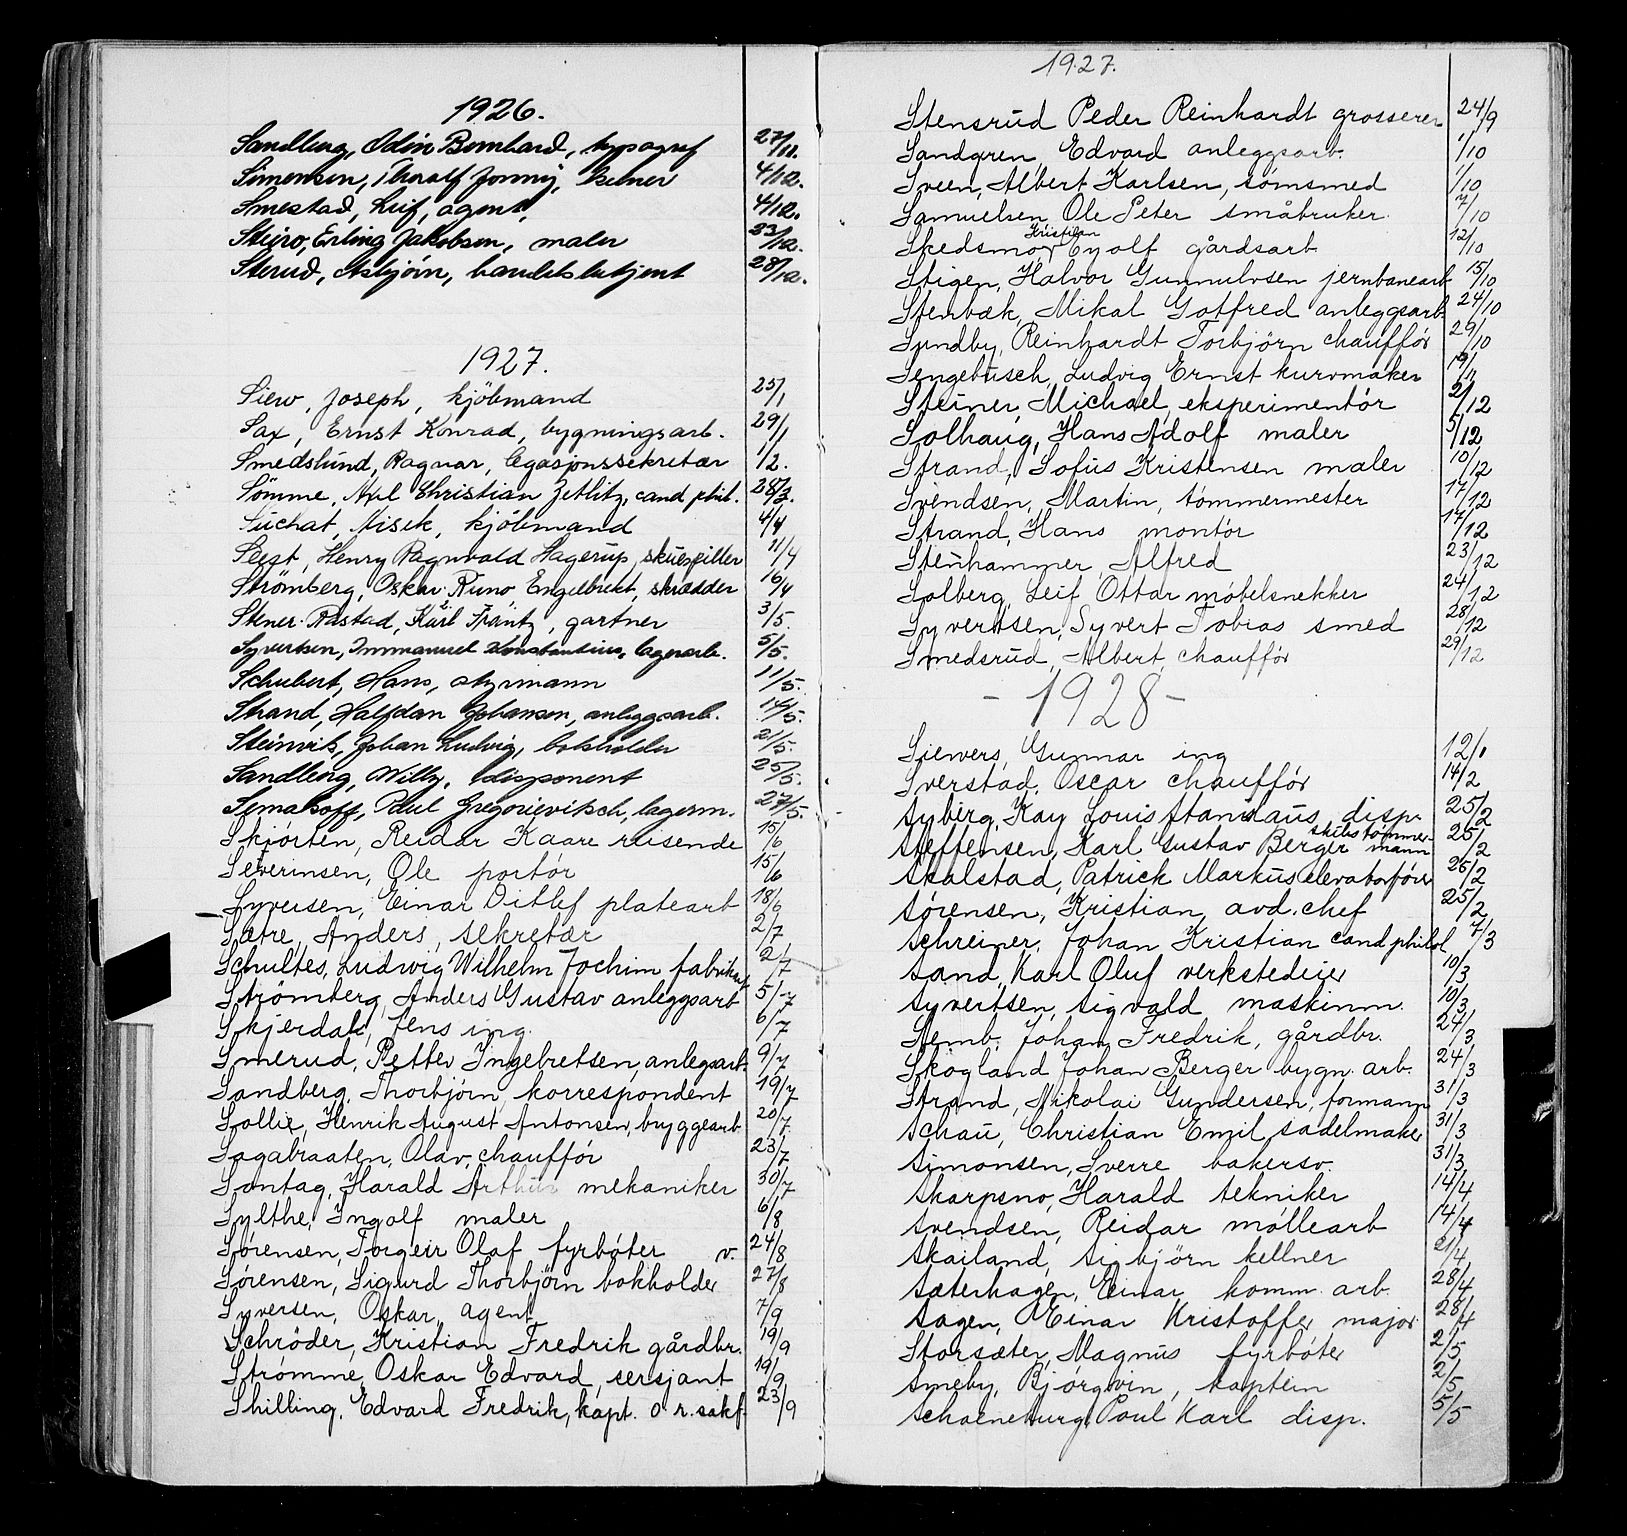 1926.
Sandberg, Odin Bernhard, typograf 27/11.
Simensen, Thoralf Jonny, kelner 4/12.
Smestad, Leif, agent, 4/12.
Steiro, Erling Jakobsen, maler 23/12.
Sterud, Asbjörn, handelsbetjent 28/12.
1927.
Siew, Joseph, kjöbmand 25/1
Sax, Ernst Konrad, bygningsarb. 29/1
Smedslund, Ragnar, legasjonssekretær 1/2.
Sömme, Axel Christian Zetlitz, cand phil. 28/3.
Suchat, Misek, kjöbmand 4/4
Seest, Henry Ragnvald Hagerup, skuespiller 11/4
Strömberg, Oskar Runo Engelbrekt, skrædder 16/4
Stener-Rastad, Karl Frantz, gartner 3/5.
Syvertsen, Immanuel Konstantius, lagerarb. 5/5.
Schubert, Hans, styrmann 11/5.
Strand, Halfdan Johansen, anleggsarb. 14/5.
Steinvik, Johan Ludvig, bokholder 21/5.
Sandberg, Willy, disponent 25/5.
Semakoff, Paul Gregorievitsch, lagerm. 27/5.
Skjörten, Reidar Kaare reisende 15/6
Severinsen, Ole portör 15/6
Syversen, Einar Ditlef platearb 18/6
Sætre, Anders, sekretær 2/7
Schultes, Ludwig Wilhelm Jochim fabrikant 2/7
Strömberg, Anders Gustav anleggsarb 5/7
Skjerdal, Jens ing. 6/7
Smerud, Petter Ingebretsen, anlegsarb. 9/7
Sandberg, Thorbjörn, korrespondent 19/7
Sollie, Henrik August Antonsen, bryggearb 20/7
Sagabraaten, Olav, chaufför 23/7
Sontag, Harald Arthur mekaniker 30/7
Sylthe, Ingolf maler 6/8
Sörensen, Torgeir Olaf fyrböter v. 24/8
Sörensen, Sigurd Thorbjörn bokholder 27/8
Syversen, Oskar, agent 7/9
Schröder, Kristian Fredrik gårdbr. 19/9
Strömme, Oskar Edvard, sersjant 19/9
Shilling, Edvard Fredrik, kapt. o r. sakf. 23/9
1927.
Stensrud Peder Reinhardt grosserer 24/9
Sandgren, Edvard anleggsarb. 1/10
Sveen, Albert Karlsen, sömsmed 1/10
Samuelsen Ole Peter småbruker 7/10
Kristian
Skedsmo, Eyolf gårdsarb 12/10
Stigen, Halvor Gunnulvsen jernbanearb 15/10
Stenbæk, Mikal Gotfred anleggsarb. 24/10
Sundby, Reinhardt Torbjörn chaufför 29/10
Sengebusch, Ludvig Ernst kurvmaker 19/11
Steiner, Michael eksperimentör 2/12
Solhaug, Hans Adolf maler 5/12
Strand, Sofus Kristensen maler 10/12
Svendsen, Martin, tömmermester 17/12
Strand, Hans montör 17/12
Stenhammer, Alfred 23/12
Solberg, Leif Ottar möbelsnekker 24/12
Syvertsen, Syvert Tobias smed 28/12
Smedsrud, Albert, chaufför 29/12
- 1928 -
Siewers, Gunnar ing 12/1
Sverstad, Oscar chaufför 14/2
Syberg, Kay Louis Stanislaus, disp. 25/2
skibstömmer-
Steffensen, Karl Gustav Berger mann 25/2
Skalstad, Patrick Markus elevatorförer 25/2
Sörensen, Kristian, avd. chef 25/2
Schreiner, Johan Kristian cand philol 7/3
Sand, Karl Oluf verkstedeier 10/3
Syvertsen, Sigvald maskinm. 10/3
Semb, Johan Fredrik, gårdbr. 24/3
Skogland Johan Berger bygn. arb. 24/3
Strand, Nikolai Gundersen, formann 31/3
Schau, Christian Emil sadelmaker 31/3
Simonsen, Sverre bakersv. 31/3
Skarpsno, Harald tekniker 14/4
Svendsen, Reidar möllearb 14/4
Skailand, Sigbjörn kellner 21/4
Sæterhagen, Einar komm. arb. 28/4
Sagen, Einar Kristoffer major 28/4
Storsæter, Magnus fyrböter 2/5
Smeby, Björgvin, kaptein 2/5
Schoeneburg, Paul Karl disp. 5/5